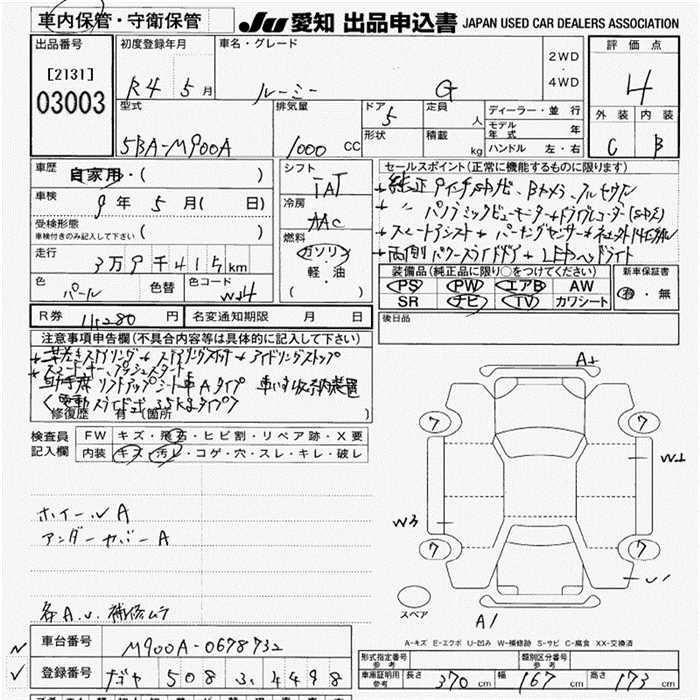 車内保管・守衛保管 JU 愛知 出品申込書 JAPAN USED CAR DEALERS ASSOCIATION
出品番号 初度登録年月 車名・グレード 評価点
[2131] R4 5月 ルーミー G 2WD・4WD 4
03003
型式 排気量 ドア 定員 人 ディーラー・並行 外装 内装
5 モデル年式 年
5BA-M900A 1000 CC 形状 積載 kg ハンドル 左・右 C B
車歴 自家用・( ) シフト セールスポイント(正常に機能するものに限ります)
IAT +純正9インチSDナビ、Bカメラ、フルセグ
車検 9年5月( 日) 冷房 + パノラミックビューモニター+ドライブレコーダー
AAC +スマートアシスト+パーキングセンサー
受検形態 車検付きのみ記入して下さい ( ) 燃料 +両側パワースライドドア+LEDヘッドライト
走行 3万9千415km ガソリン・軽・油 ( ) 装備品(純正品に限り○をつけてください) 新車保証書
色 パール 色替 色コード W24 PS PW エアB AW 有・無
SR ナビ TV カワシート
R券 11,280円 名変通知期限 月 日 後日品
注意事項申告欄(不具合内容等は具体的に記入して下さい)
+革巻きステアリング+ステアリングスイッチ+アイドリングストップ
+スマートキー、プッシュスタート
助手席リフトアップシート車Aタイプ 車いす収納装置
<電動スライド式 35kgタイプ>
修復歴 有(箇所 )
A2
7 7
検査員記入欄 FW キズ・飛石・ヒビ割・リペア跡・X要
内装 キズ・汚レ・コゲ・穴・スレ・キレ・破レ
W2
W3
ホイールA
アンダーカバーA
7 7
U1
各A.U.補修ムラ
スペア
A1
A-キズ E-エクボ U-凹み W-補修跡 S-サビ C-腐食 XX-交換済
車台番号 M900A-0678732
形式指定番号 参考 類別区分番号 参考
登録番号 508 4498
車庫証明用参考 長さ 370cm 幅 167cm 高さ 173cm